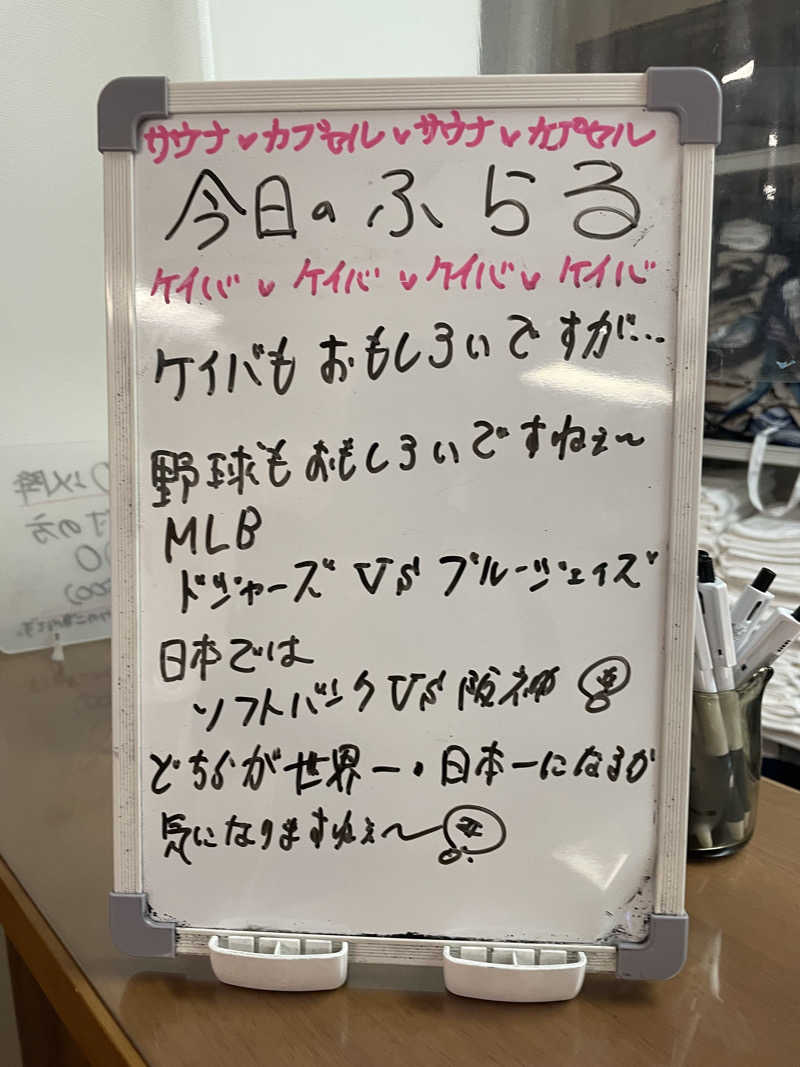 サウナ♥カプセル♥サウナ♥カプセル
今日のふらる
ケイバ♥ケイバ♥ケイバ♥ケイバ
ケイバもおもしろいですが…
野球もおもしろいですねぇ〜
MLB
ドジャーズVSブルージェイズ
日本では
ソフトバンクVS阪神
どちらが世界一・日本一になるか
気になりますねぇ〜
以降
の方